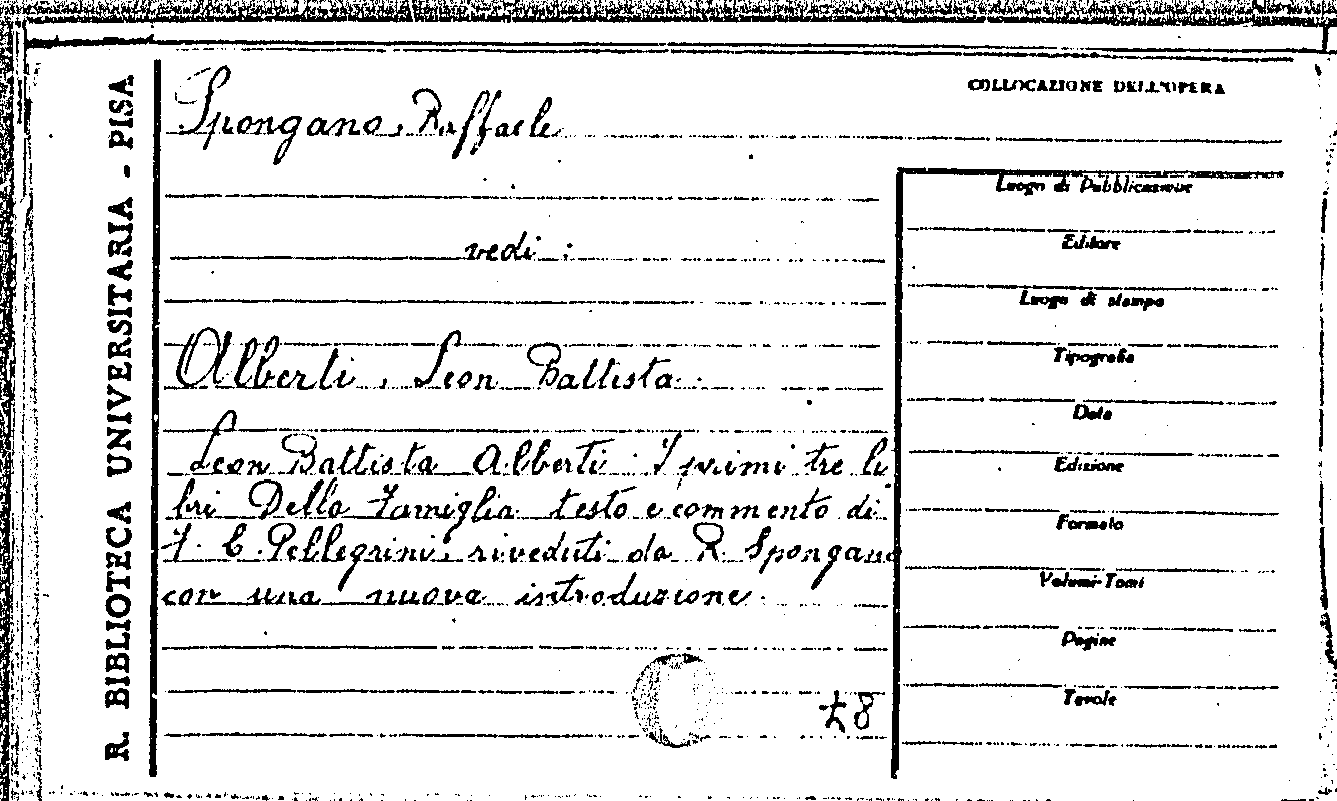 R. BIBLIOTECA UNIVERSITARIA - PISA
COLLOCAZIONE DELL'OPERA
Spongano, Raffaele
vedi :
Alberti, Leon Battista.
Leon Battista Alberti. I primi tre li
bri Della Famiglia testo e commento di
F. C. Pellegrini, riveduti da R. Spongano
con una nuova introduzione.
78
Luogo di Pubblicazione
Editore
Luogo di stampa
Tipografia
Data
Edizione
Formato
Volumi-Tomi
Pagine
Tavole